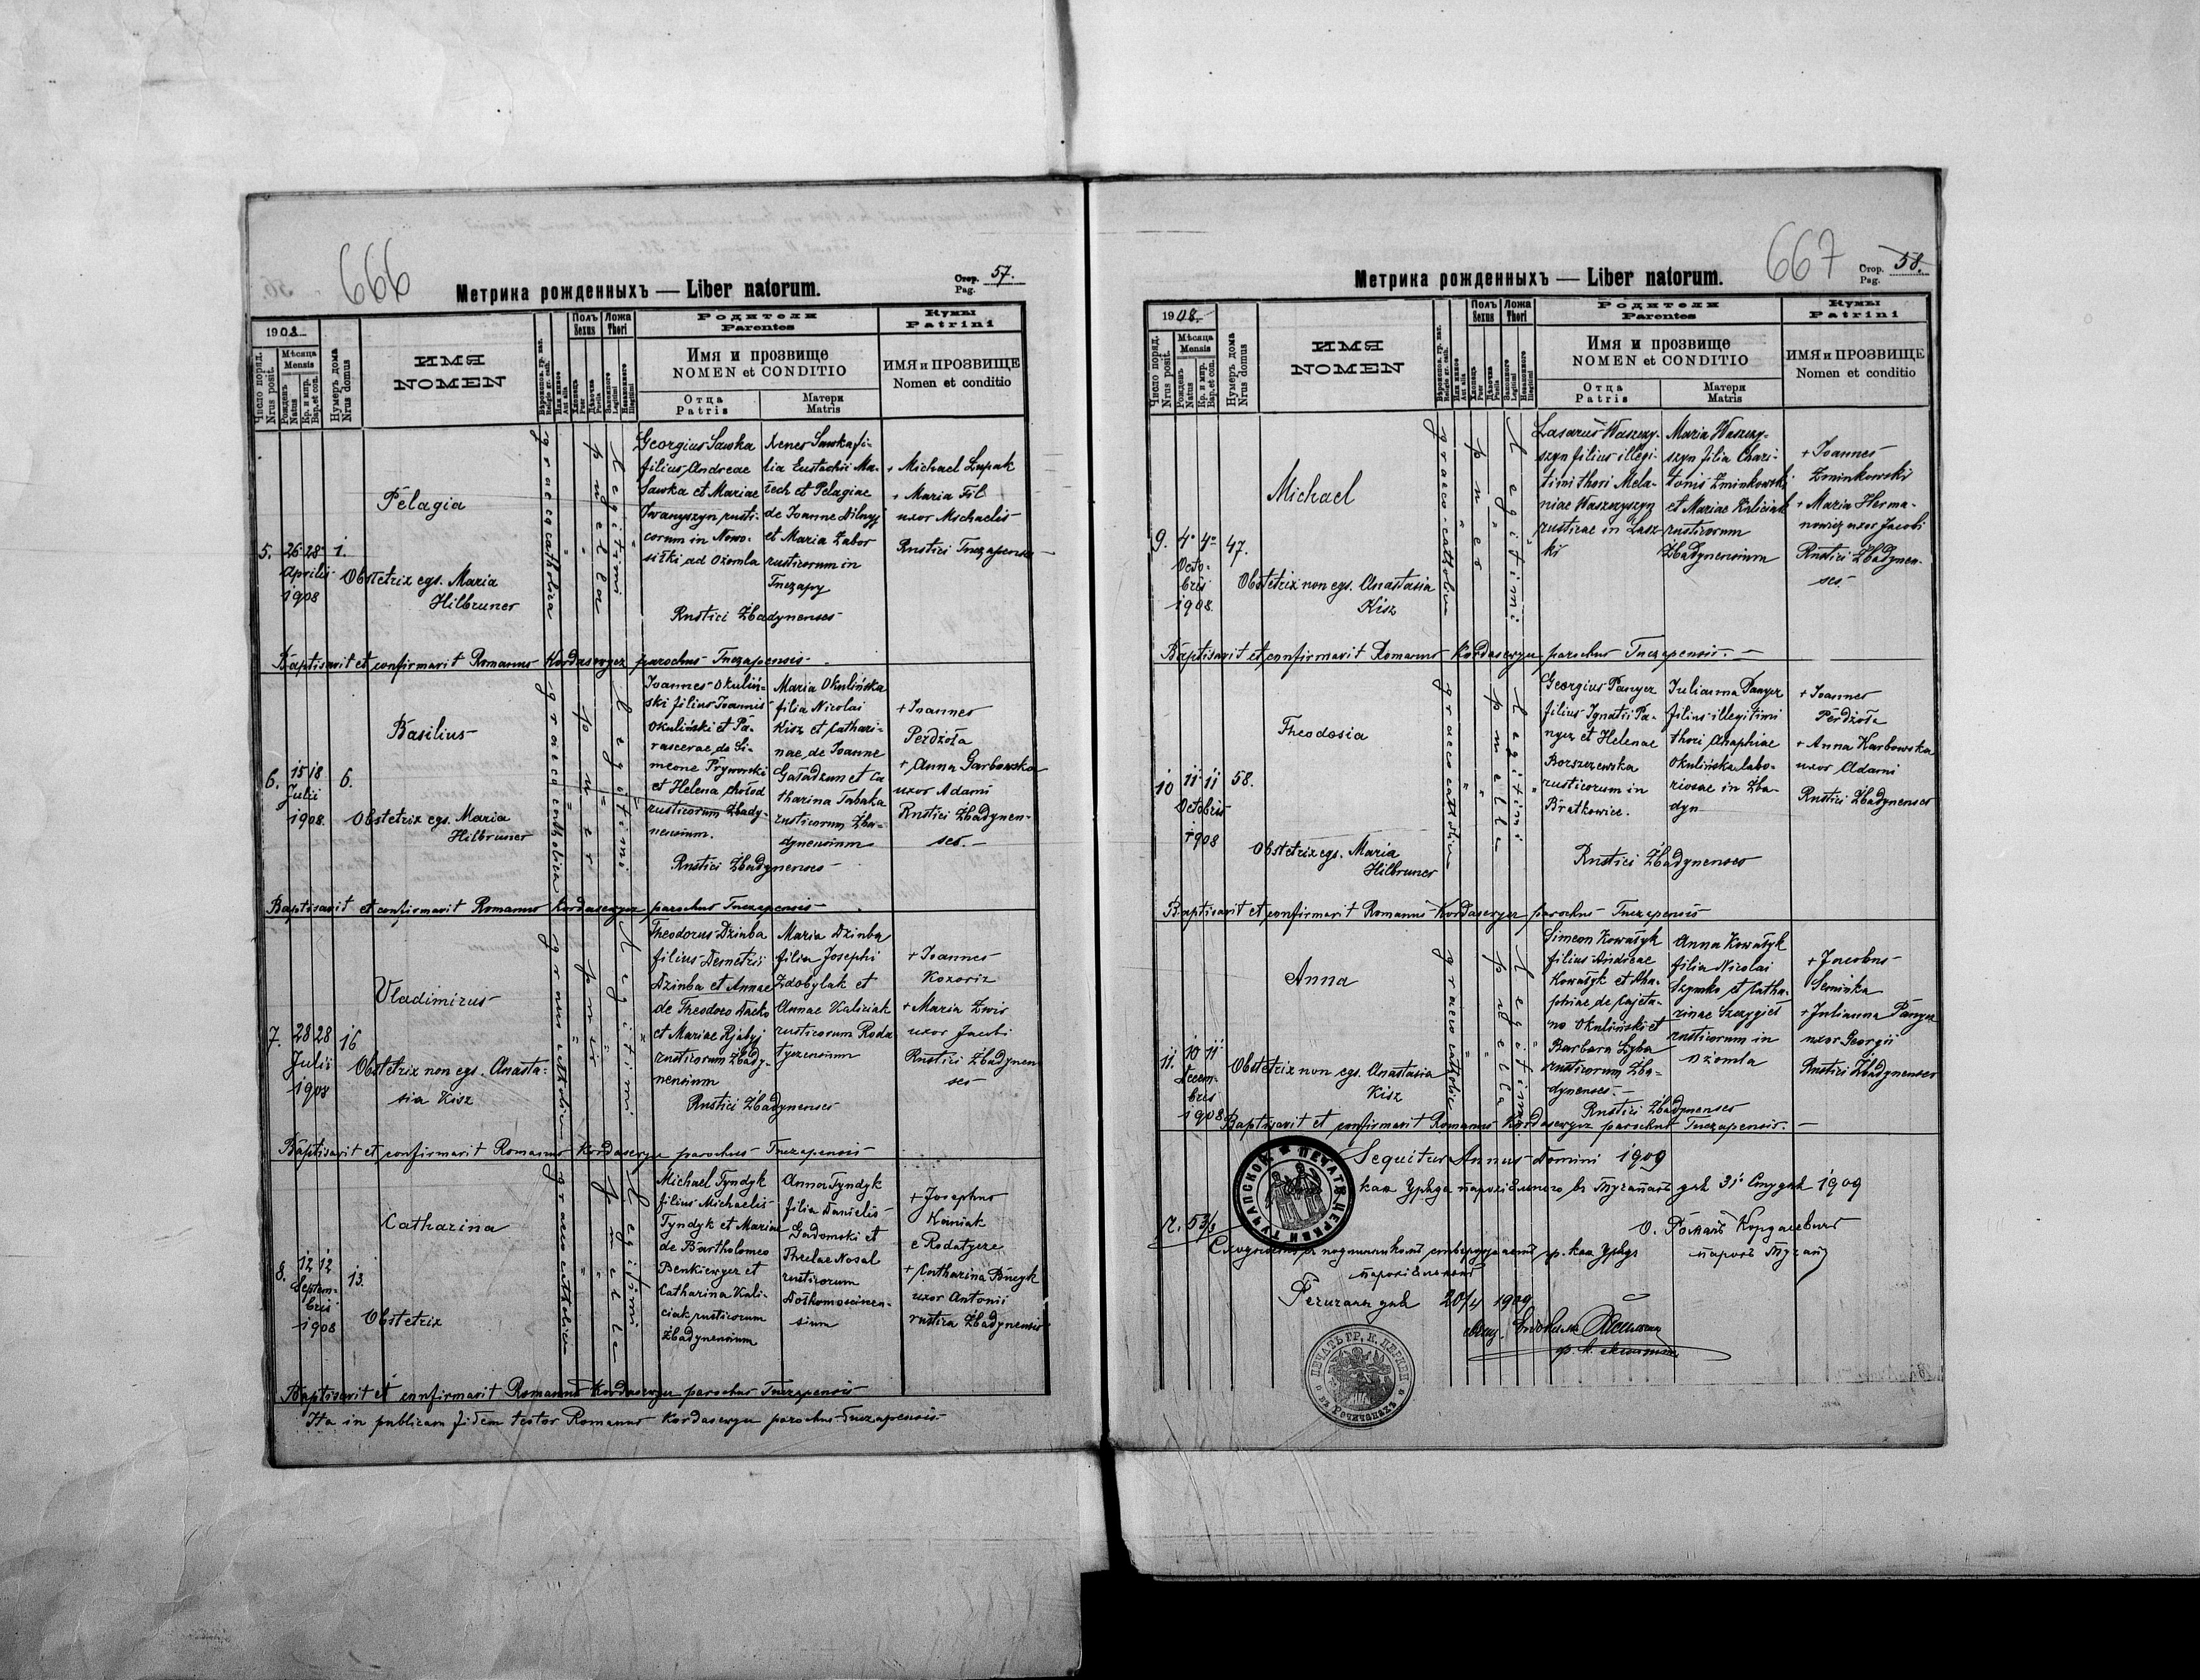 666
Метрика рожденныхъ — Liber natorum.
Стор. Pag. 57.
1908
Число поряд. Nrus posit.
Мѣсяца Mensis
Рожденъ Natus
Кр. и мѵр. Bap. et con.
Нумеръ дома Nrus domus
ИМЯ
NOMEN
Полъ Sexus
Ложа Thori
Родители
Parentes
Имя и прозвище
NOMEN et CONDITIO
Отца Patris
Матери Matris
Кумы
Patrini
ИМЯ и ПРОЗВИЩЕ
Nomen et conditio
5. 26 28 1.
Aprilis
1908
Pelagia
Obstetrix egs. Maria
Hilbruner
graeco catholica
puella
legitimi
Georgius Sawka
filius Andreae
Sawka et Mariae
Iwanyszyn rusti-
corum in Nowo-
siłki ad Ożomla
Xenes Sawka fi-
lia Eustachii Ma-
rech et Pelagiae
de Joanne Dilnyj
et Maria Zabor
rusticorum in
Tuczapy
Rustici Zbadynenses
+ Michael Łupak
+ Maria Fil
uxor Michaelis
Rustici Tuczapenses
Baptisavit et confirmavit Romanus Kordasewycz parochus Tuczapensis
6. 15 18 6.
Julii
1908.
Basilius
Obstetrix egs. Maria
Hilbruner
graeco catholica
puer
legitimi
Joannes Okuliń-
ski filius Joannis
Okuliński et Pa-
rascevae, de Si-
meone Prywroski
et Helena chołod
rusticorum Zbady-
nensium.
Maria Okulińska
filia Nicolai
Kisz et Cathari-
nae, de Joanne
Gaładzun et Ca
tharina Tabaka
rusticorum Zba-
dynensium
Rustici Zbadynenses
+ Joannes
Perdzoła
+ Anna Garbowska
uxor Adami
Rustici Zbadynen-
ses.
Baptisavit et confirmavit Romanus Kordasewycz parochus Tuczapensis
7. 28 28 16
Julii
1908
Vladimirus
Obstetrix non egs. Anasta-
sia Kisz
legitimi
Theodorus Dzinba
filius Demetrii
Dzinba et Annae
de Theodoro Dacko
et Mariae Rjabyj
rusticorum Zbady-
nensium
Maria Dzinba
filia Josephi
Zdobylak et
Annae Kaliciak
rusticorum Roda
tyczensium
Rustici Zbadynenses
+ Joannes
Kozoriz
+ Maria Zwir
uxor Jacobi
Rustici Zbadynen
ses
Baptisavit et confirmavit Romanus Kordasewycz parochus Tuczapensis
8. 12 12 13.
Septem-
bris
1908
Catharina
Obstetrix
graeco catholica
puella
legitimi
Michael Tyndyk
filius Michaelis
Tyndyk et Mariae
de Bartholomeo
Benkiewycz et
Catharina Kali-
ciak rusticorum
Zbadynensium
Anna Tyndyk
filia Danielis
Gadomski et
Theclae Nosal
rusticorum
Dołkomoscisca-
sium
+ Josephus
Koniak
e Rodatycze
+ Catharina Bucyk
uxor Antonii
rustica Zbadynensis
Baptisavit et confirmavit Romanus Kordasewycz parochus Tuczapensis
Ita in publicam fidem testor Romanus Kordasewycz parochus Tuczapensis
667
Метрика рожденныхъ — Liber natorum.
Стор. Pag. 58.
1908.
Число поряд. Nrus posit.
Мѣсяца Mensis
Рожденъ Natus
Кр. и мѵр. Bap. et con.
Нумеръ дома Nrus domus
ИМЯ
NOMEN
Полъ Sexus
Ложа Thori
Родители
Parentes
Имя и прозвище
NOMEN et CONDITIO
Отца Patris
Матери Matris
Кумы
Patrini
ИМЯ и ПРОЗВИЩЕ
Nomen et conditio
9. 4 4 47.
Octo-
bris
1908.
Michael
Obstetrix non egs. Anastasia
Kisz
graeco-catholica
puer
legitimi
Lasarus Waszczy-
szyn filius illegi-
timi thori Mela-
niae Waszczyszyn
rusticae in Lasz-
ki
Maria Waszczy-
szyn filia Chari-
tonis Zminkowski
et Mariae Kaliciak
rusticorum
Zbadynensium
+ Joannes
Zminkowski
+ Maria Herma-
nowicz uxor Jacobi
Rustici Zbadynen-
ses
Baptisavit et confirmavit Romanus Kordasewycz parochus Tuczapensis.
10 11 11 58.
Octobris
1908
Theodosia
Obstetrix egs. Maria
Hilbruner
graeco catholica
puella
legitimi
Georgius Panycz
filius Ignatii Pa-
nycz et Helenae
Borszczewska
rusticorum in
Bratkowice.
Julianna Panycz
filius illegitimi
thori Anaphiae
Okulińska labo-
riosae in Zba-
dyn
Rustici Zbadynenses
+ Joannes
Perdzoła
+ Anna Karbowska
uxor Adami
Rustici Zbadynenses
Baptisavit et confirmavit Romanus Kordasewycz parochus Tuczapensis
11. 10 11
Decem-
bris
1908
Anna
Obstetrix non egs. Anastasia
Kisz
puella
legitimi
Simeon Kowałyk
filius Andreae
Kowałyk et Aha-
phiae de Cajeta-
no Okuliński et
Barbara Lyba
rusticorum Zba-
dynenses.
Anna Kowałyk
filia Nicolai
Szymko et Catha-
rinae Szczygieł
rusticorum in
Ożomla
Rustici Zbadynenses
+ Jacobus
Seminka
+ Julianna Panycz
uxor Georgii
Rustici Zbadynenses
Baptisavit et confirmavit Romanus Kordasewycz parochus Tuczapensis.
Sequitur Annus Domini 1909
1909
о. Романъ Кордасевичъ
20/4 1909
ПЕЧАТЬ ЦЕРКВИ ТУЧАПСКОЙ
ПЕЧАТЬ ГР. К. ЦЕРКВИ въ Речичанахъ